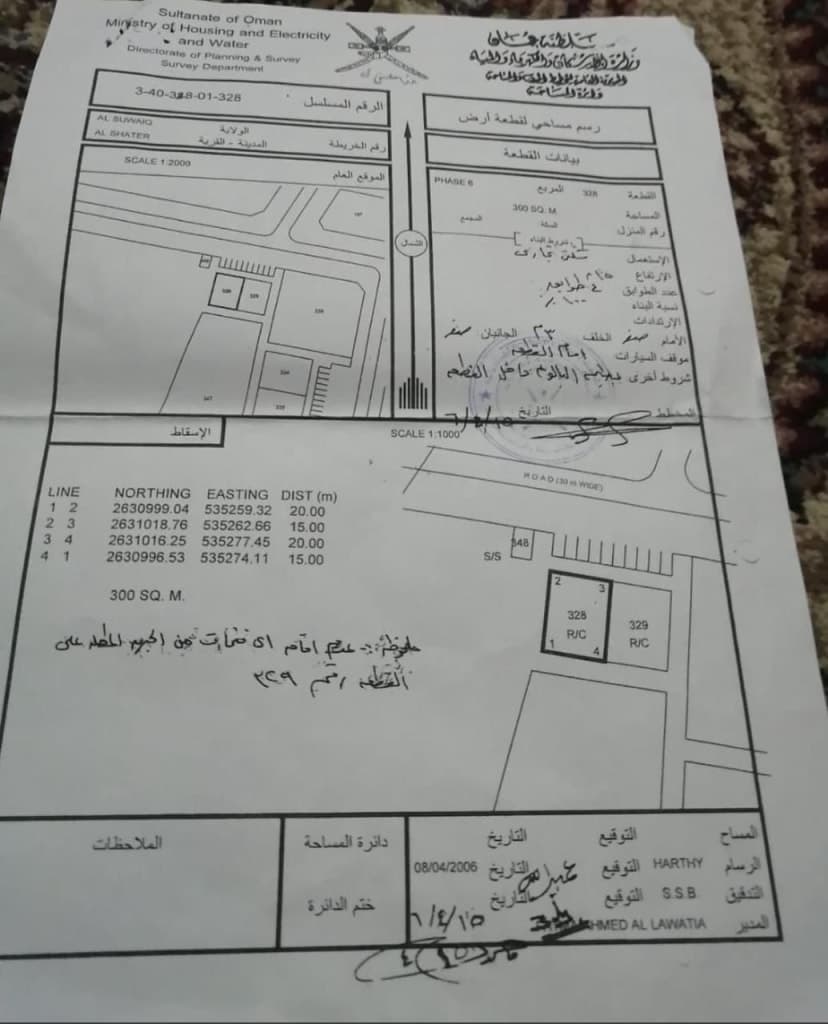 Sultanate of Oman
Ministry of Housing and Electricity
and Water
Directorate of Planning & Survey
Survey Department
سلطنة عمان
دائرة المساحة
الرقم المسلسل 3-40-328-01-328
رسم مساحي لقطعة أرض
AL SUWAIQ
الولاية
AL SHATER
المدينة - القرية
رقم الخريطة
بيانات القطعة
SCALE 1:2000
الموقع العام
القطعة 328 المربع PHASE 6
المساحة 300 SQ. M
رقم المنزل السكة المجمع
شروط البناء
الإستعمال سكني تجاري
الارتفاع
عدد الطوابق
نسبة البناء ١٠٠٪
الإرتدادات
الأمام صفر الخلف ٣م الجانبان صفر
موقف السيارات امام القطعه
شروط أخرى داخل القطعه
المخطط التاريخ
الشمال
الإسقاط
SCALE 1:1000
LINE NORTHING EASTING DIST (m)
1 2 2630999.04 535259.32 20.00
2 3 2631018.76 535262.66 15.00
3 4 2631016.25 535277.45 20.00
4 1 2630996.53 535274.11 15.00
300 SQ. M.
ROAD (30 m WIDE)
S/S
348
2 3
328
R/C
1 4
329
R/C
ملاحظة :- عدم اقامة اي فتحات من الجهه المطله على
القطعه رقم ٣٢٩
الملاحظات
دائرة المساحة
ختم الدائرة
المساح التوقيع التاريخ
الرسام HARTHY التوقيع التاريخ 08/04/2006
التدقيق S.S.B. التوقيع التاريخ
المدير AHMED AL LAWATIA